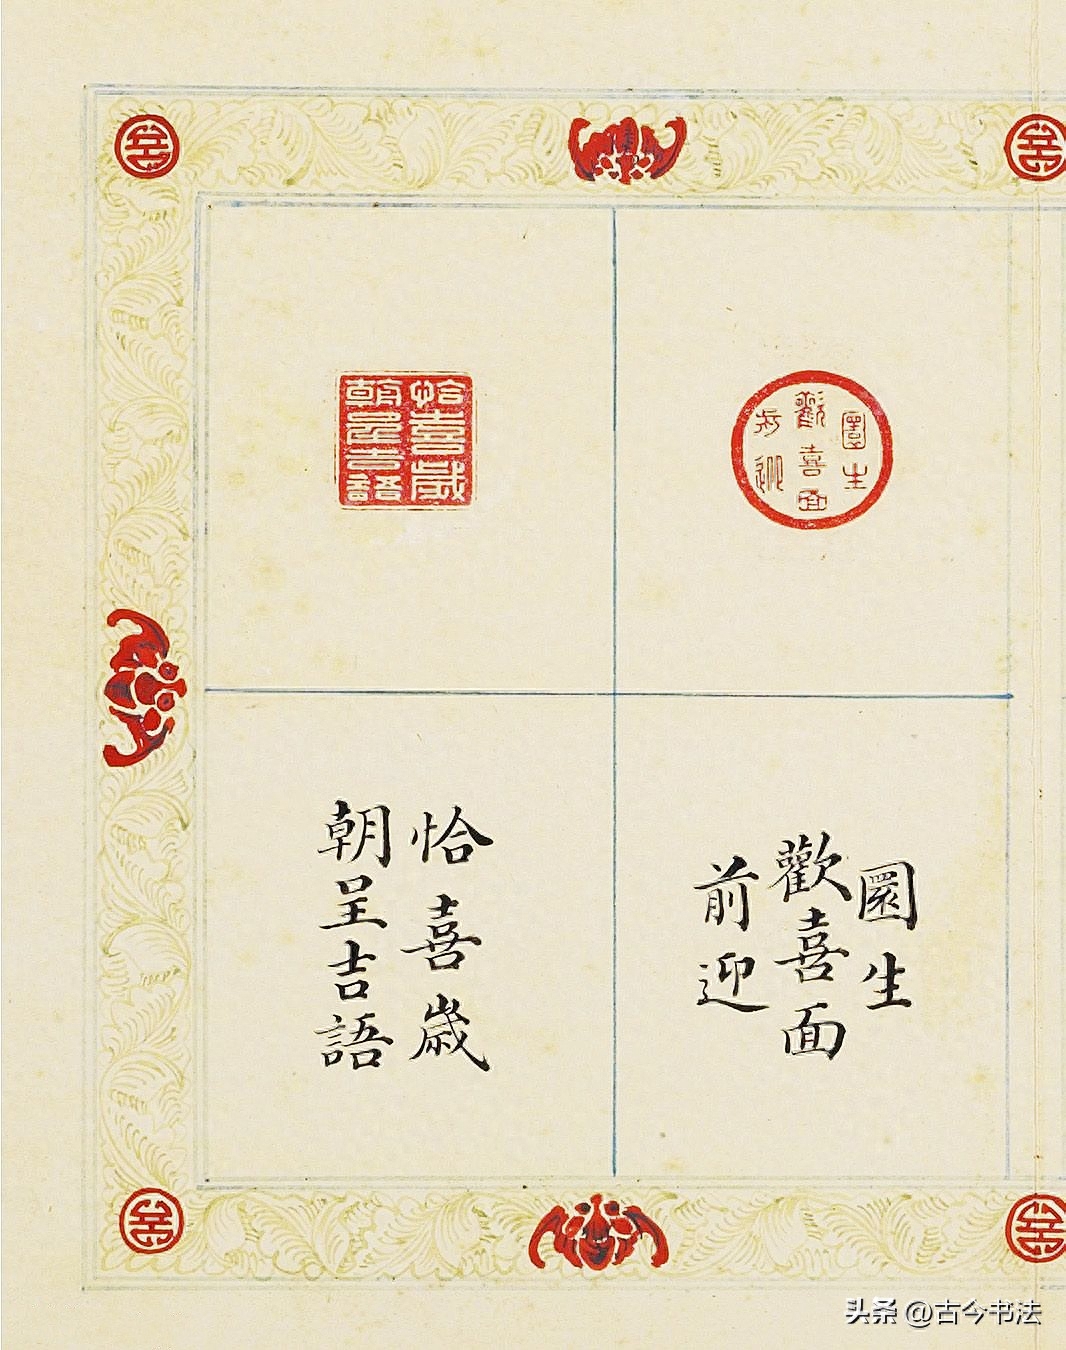 圜生
歡喜面
前迎
恰喜歲
朝呈吉語
圜生
歡喜面
前迎
恰喜歲
朝呈吉語
头条 @古今书法